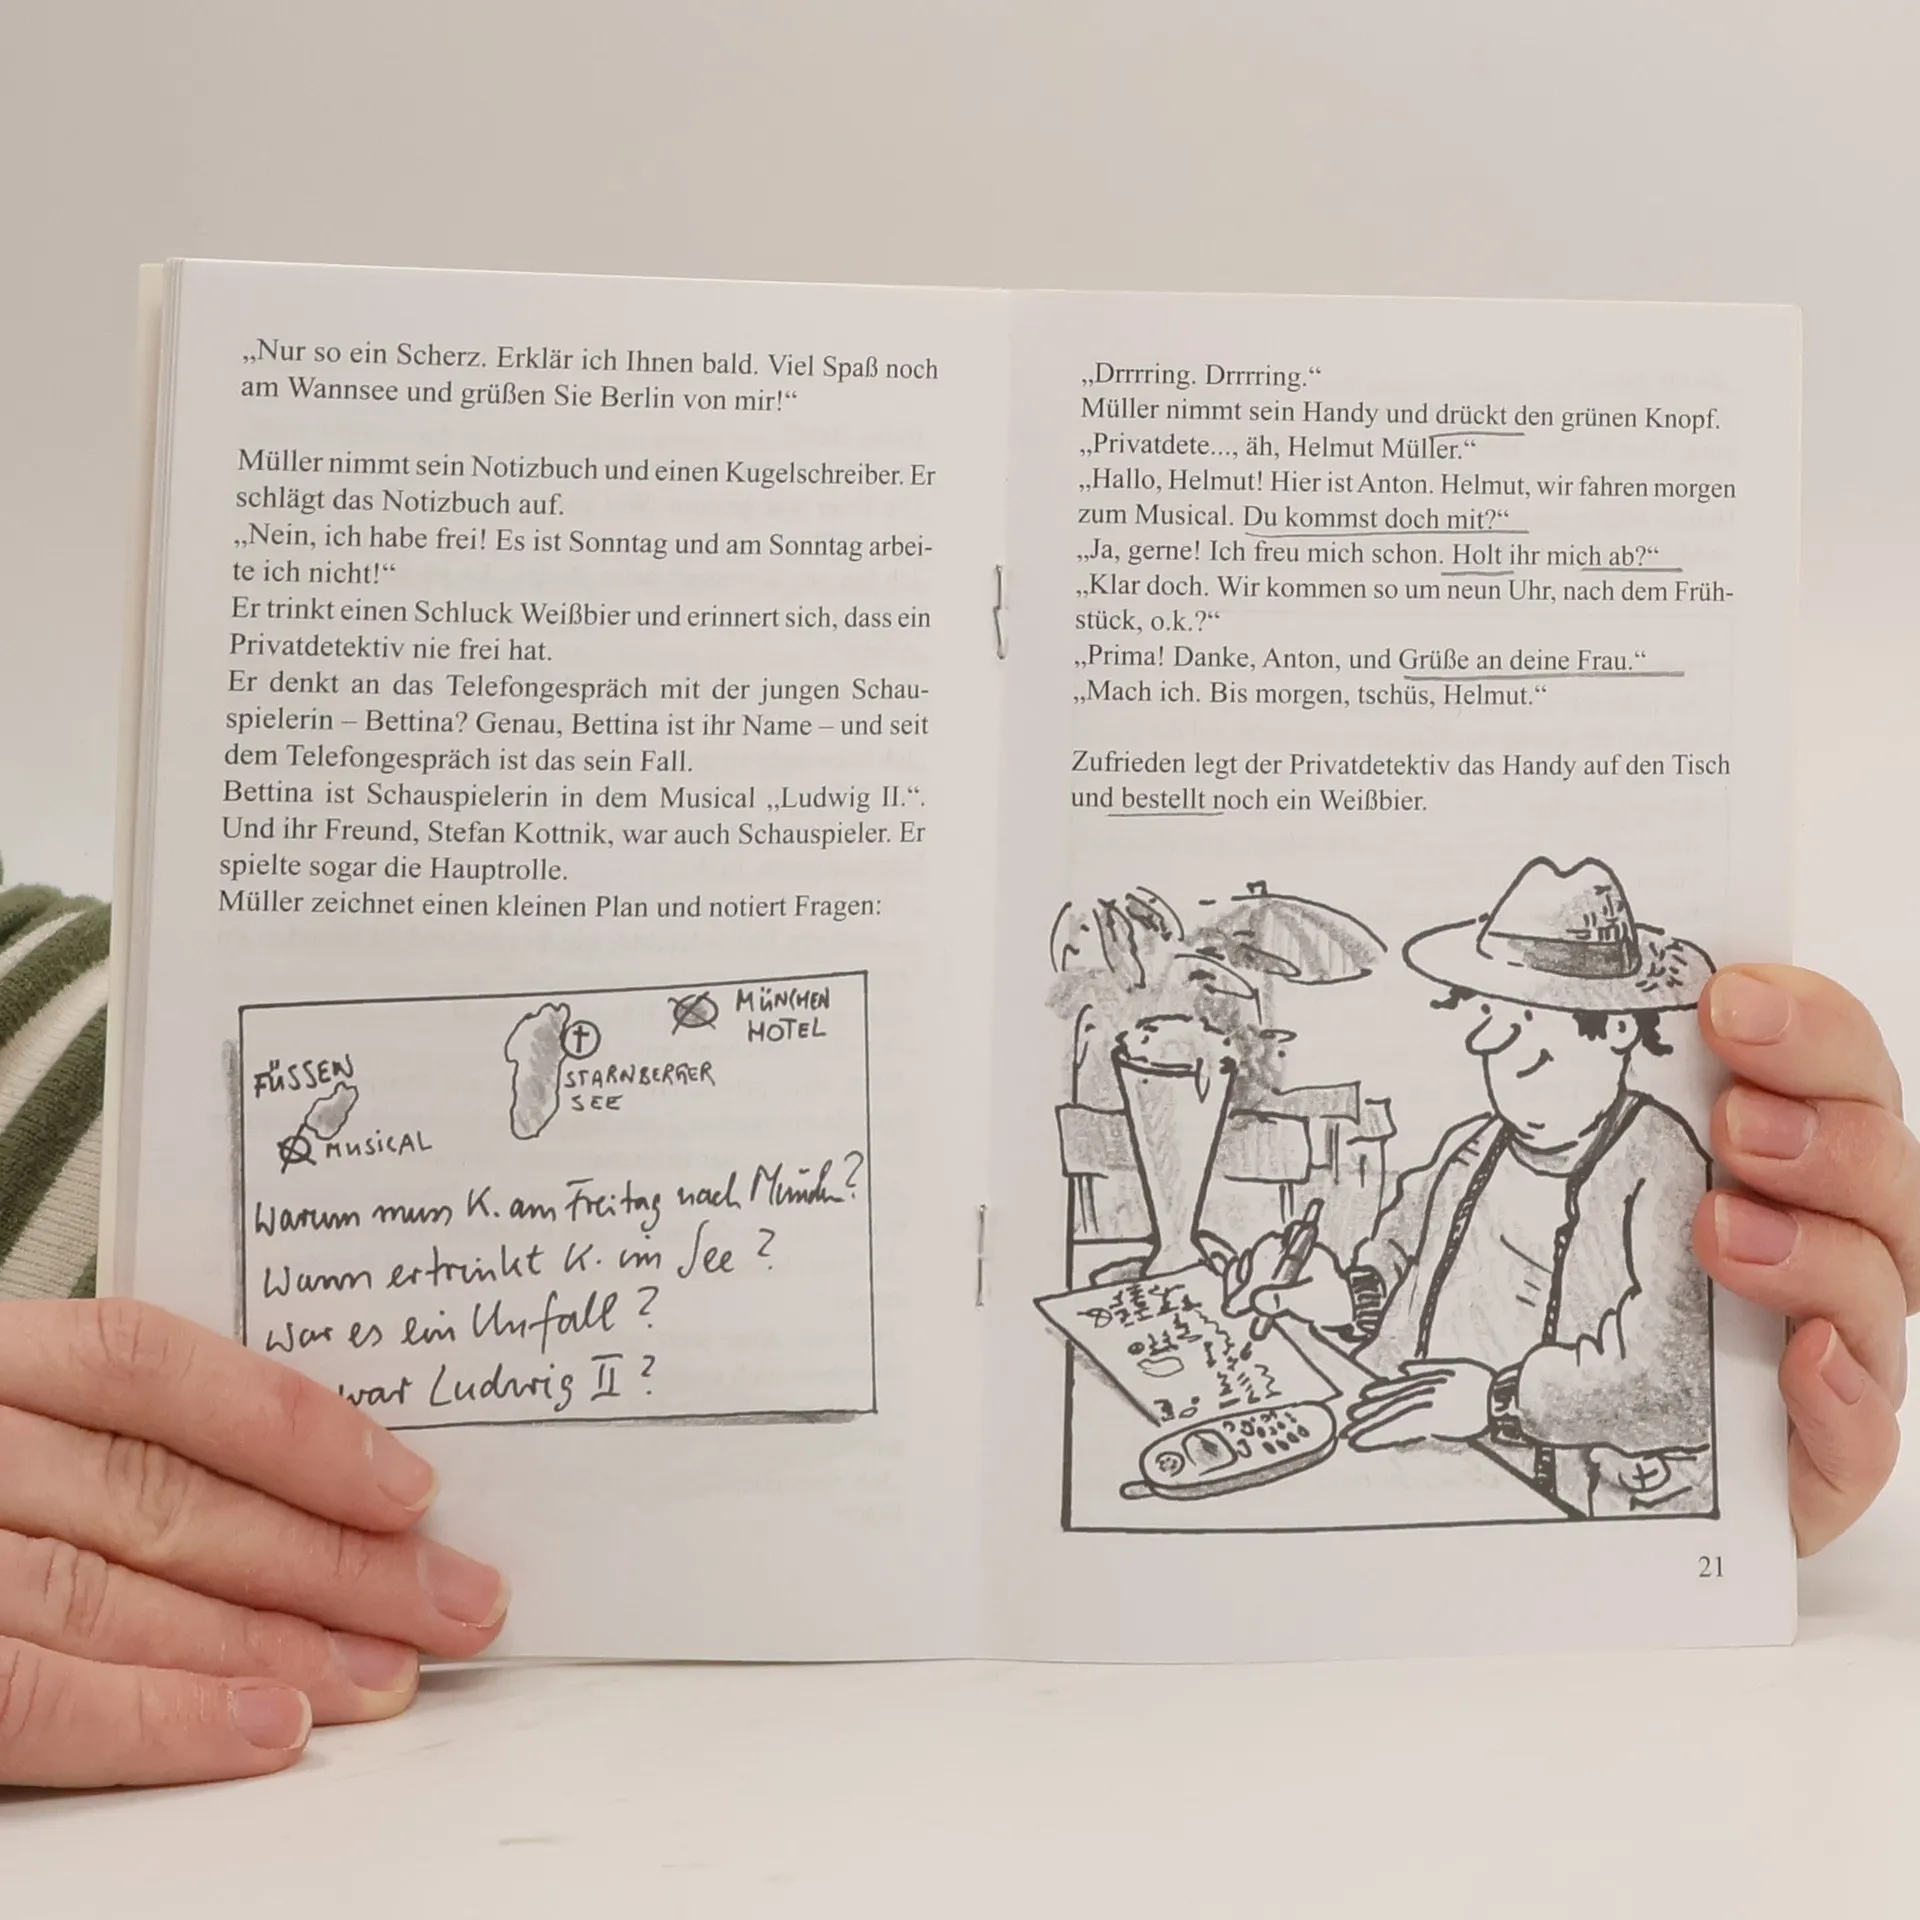 „Nur so ein Scherz. Erklär ich Ihnen bald. Viel Spaß noch
am Wannsee und grüßen Sie Berlin von mir!“
Müller nimmt sein Notizbuch und einen Kugelschreiber. Er
schlägt das Notizbuch auf.
„Nein, ich habe frei! Es ist Sonntag und am Sonntag arbei-
te ich nicht!“
Er trinkt einen Schluck Weißbier und erinnert sich, dass ein
Privatdetektiv nie frei hat.
Er denkt an das Telefongespräch mit der jungen Schau-
spielerin – Bettina? Genau, Bettina ist ihr Name – und seit
dem Telefongespräch ist das sein Fall.
Bettina ist Schauspielerin in dem Musical „Ludwig II.“.
Und ihr Freund, Stefan Kottnik, war auch Schauspieler. Er
spielte sogar die Hauptrolle.
Müller zeichnet einen kleinen Plan und notiert Fragen:
MÜNCHEN
HOTEL
STARNBERGER
SEE
FÜSSEN
MUSICAL
Warum muss K. am Freitag nach Münch?
Wann ertrinkt K. im See?
War es ein Unfall?
war Ludwig II?
„Drrrring. Drrrring.“
Müller nimmt sein Handy und drückt den grünen Knopf.
„Privatdete..., äh, Helmut Müller.“
„Hallo, Helmut! Hier ist Anton. Helmut, wir fahren morgen
zum Musical. Du kommst doch mit?“
„Ja, gerne! Ich freu mich schon. Holt ihr mich ab?“
„Klar doch. Wir kommen so um neun Uhr, nach dem Früh-
stück, o.k.?“
„Prima! Danke, Anton, und Grüße an deine Frau.“
„Mach ich. Bis morgen, tschüs, Helmut.“
Zufrieden legt der Privatdetektiv das Handy auf den Tisch
und bestellt noch ein Weißbier.
21